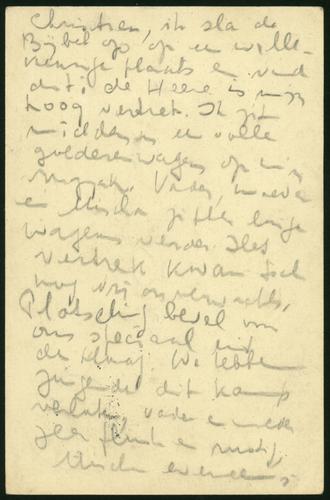 Christien, ik sla de
Bijbel op op een wille-
keurige plaats en vind
dit: de Heere is mijn
hoog vertrek. Ik zit
midden in een volle
goederenwagen op mijn
rugzak. Vader, moeder
en Mischa zitten enige
wagens verder. Het
vertrek kwam toch
nog vrij onverwachts.
Plotseling bevel voor
ons speciaal uit
den Haag. We hebben
zingende dit kamp
verlaten, vader en moeder
zeer flink en rustig.
Mischa eveneens.